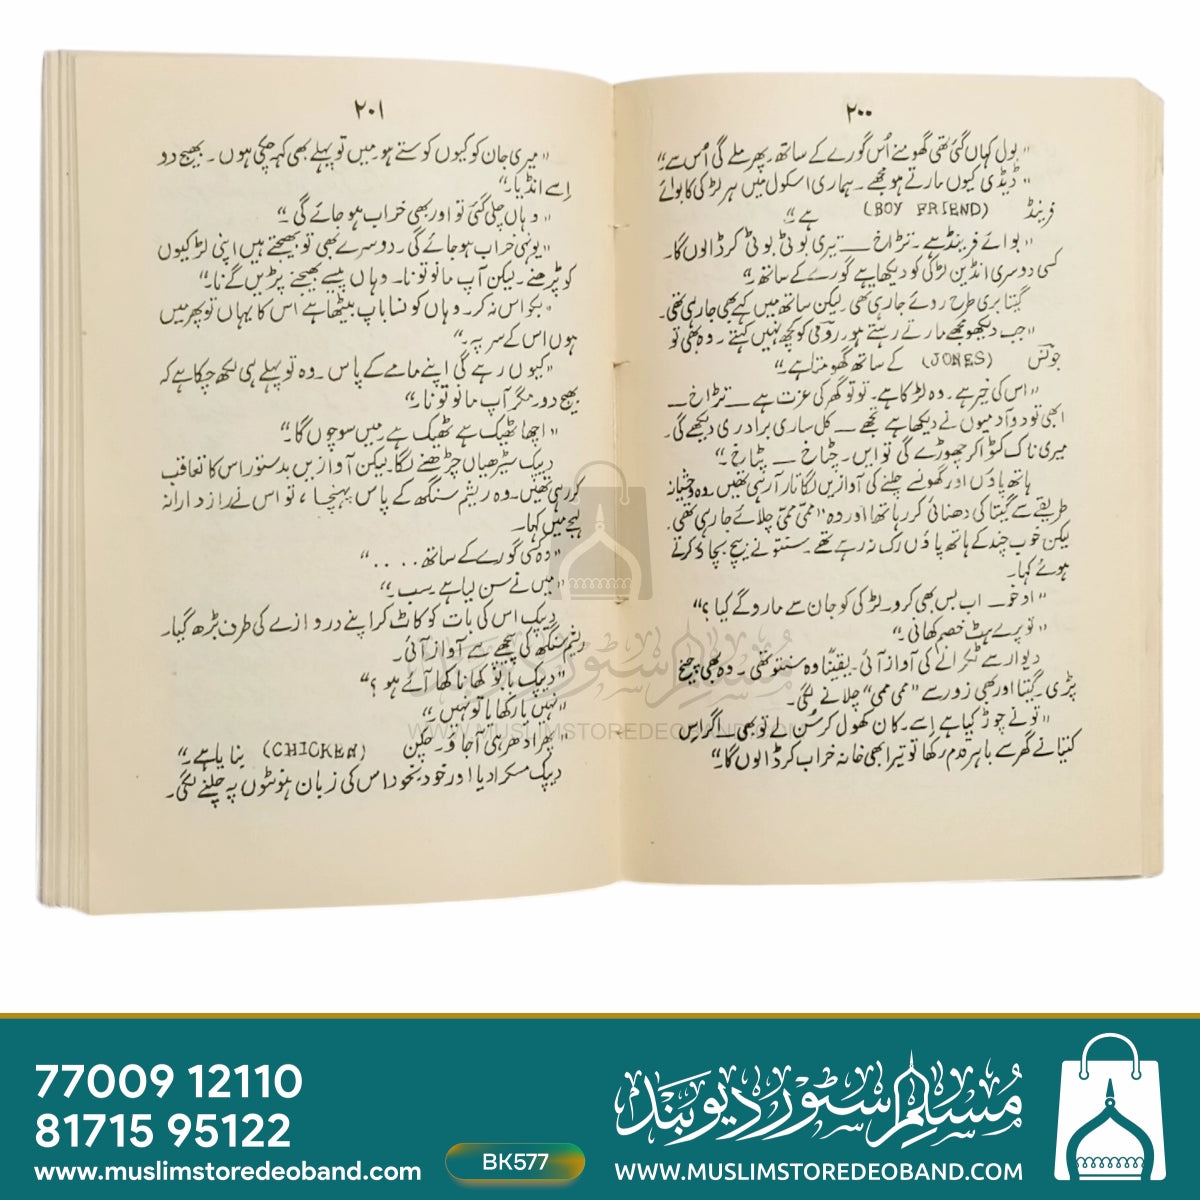 ۲۰۰
"بول کہاں گئی تھی گھومنے اُس گورے کے ساتھ۔ پھر ملے گی اُس سے"
"ڈیڈی کیوں مارتے ہو مجھے۔ ہماری اسکول میں ہر لڑکی کا بوائے
فرینڈ (BOY FRIEND) ہے"
"بوائے فرینڈ ہے۔ تڑاخ ـــ تیری بوٹی بوٹی کر ڈالوں گا۔
کسی دوسری انڈین لڑکی کو دیکھا ہے گورے کے ساتھ"
گیتا بری طرح روئے جا رہی تھی۔ لیکن ساتھ میں کہے بھی جا رہی تھی۔
"جب دیکھو مجھے مارتے رہتے ہو۔ رومی کو کچھ نہیں کہتے۔ وہ بھی تو
جونس (JONES) کے ساتھ گھومتا ہے"
"اس کی خیر ہے۔ وہ لڑکا ہے۔ تو تو گھر کی عزت ہے ـــ تڑاخ ـــ
ابھی تو دو آدمیوں نے دیکھا ہے تجھے ـــ کل ساری برادری دیکھے گی۔
میری ناک کٹوا کر چھوڑے گی تو ایں۔ چٹاخ ـــ پٹاخ"
ہاتھ پاؤں اور گھونسے چلنے کی آوازیں لگاتار آ رہی تھیں۔ وہ وحشیانہ
طریقے سے گیتا کی دھنائی کر رہا تھا اور وہ "ممّی ممّی" چلائے جا رہی تھی۔
لیکن خوب چند کے ہاتھ پاؤں رک نہ رہے تھے۔ سنتو نے بیچ بچاؤ کرتے
ہوئے کہا۔
"اوخو۔ اب بس بھی کرو۔ لڑکی کو جان سے مارو گے کیا؟"
"تو پرے ہٹ خصم کھانی"
دیوار سے ٹکرانے کی آواز آئی۔ یقیناً وہ سنتو تھی۔ وہ بھی چیخ
پڑی۔ گیتا اور بھی زور سے "ممی ممی" چلانے لگی۔
"تو نے چوڑ کیا ہے اِسے۔ کان کھول کر سُن لے تو بھی۔ اگر اِس
کتیا نے گھر سے باہر قدم رکھا تو تیرا بھی خانہ خراب کر ڈالوں گا"
۲۰۱
"میری جان کو کیوں کوستے ہو۔ میں تو پہلے بھی کہہ چکی ہوں۔ بھیج دو
اِسے انڈیا"
"وہاں چلی گئی تو اور بھی خراب ہو جائے گی"
"یونہی خراب ہو جائے گی۔ دوسرے بھی تو بھیجتے ہیں اپنی لڑکیوں
کو پڑھنے۔ لیکن آپ مانو تو نا۔ وہاں پیسے بھیجنے پڑیں گے نا"
"بکواس نہ کر۔ وہاں کونسا باپ بیٹھا ہے اس کا یہاں تو پھر میں
ہوں اس کے سر پہ"
"کیوں رہے گی اپنے مامے کے پاس۔ وہ تو پہلے ہی لکھ چکا ہے کہ
بھیج دو۔ مگر آپ مانو تو نا"
"اچھا ٹھیک ہے ٹھیک ہے۔ میں سوچوں گا"
دیپک سیڑھیاں چڑھنے لگا۔ لیکن آوازیں بدستور اس کا تعاقب
کر رہی تھیں۔ وہ ریشم سنگھ کے پاس پہنچا، تو اس نے رازدارانہ
لہجے میں کہا۔
"وہ کسی گورے کے ساتھ . . . ."
"میں نے سن لیا ہے سب"
دیپک اس کی بات کو کاٹ کر اپنے دروازے کی طرف بڑھ گیا۔
ریشم سنگھ کی پیچھے سے آواز آئی۔
"دیپک بابو کھانا کھا آئے ہو؟"
"نہیں یار کھایا تو نہیں"
"پھر ادھر ہی آ جاؤ۔ چکن (CHICKEN) بنایا ہے"
دیپک مسکرا دیا اور خود بخود اس کی زبان ہونٹوں پہ چلنے لگی۔
مسلم سٹور دیوبند
WWW.MUSLIMSTOREDEOBAND.COM
77009 12110
81715 95122
www.muslimstoredeoband.com
BK577
مسلم سٹور دیوبند
WWW.MUSLIMSTOREDEOBAND.COM